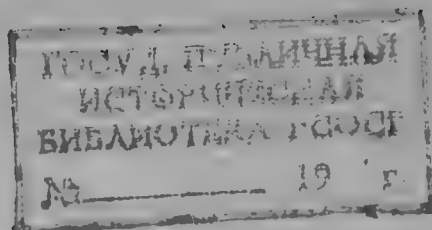 ГОСУД. ПУБЛИЧНАЯ
ИСТОРИЧЕСКАЯ
БИБЛИОТЕКА РСФСР
№ 19 г.